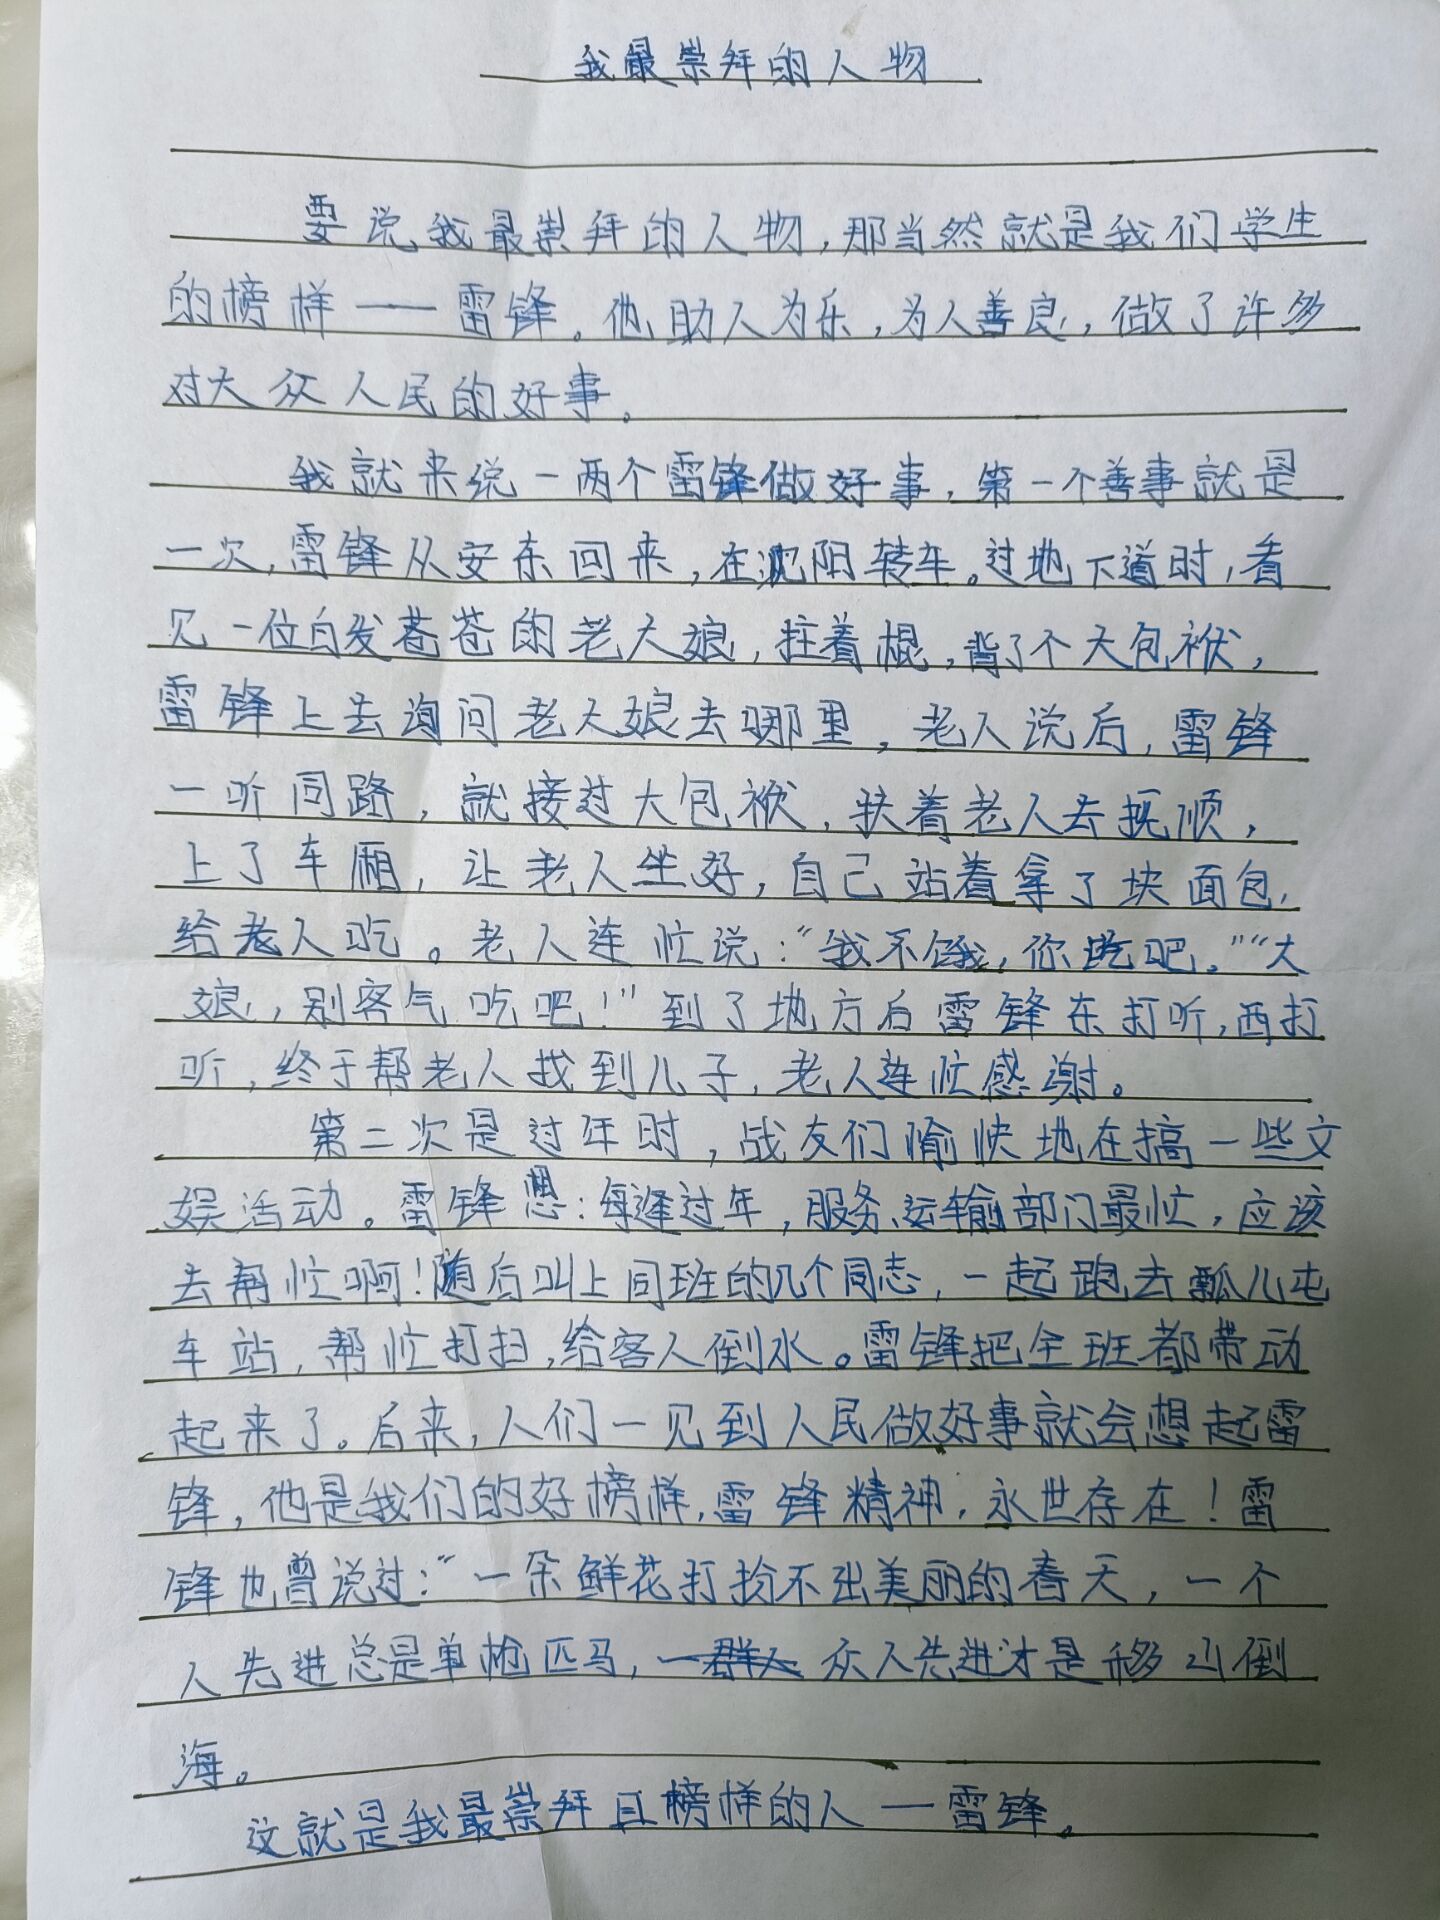 我最崇拜的人物
要说我最崇拜的人物，那当然就是我们学生
的榜样——雷锋。他助人为乐，为人善良，做了许多
对大众人民的好事。
我就来说一两个雷锋做好事，第一个善事就是
一次，雷锋从安东回来，在沈阳转车。过地下道时，看
见一位白发苍苍的老大娘，拄着棍，背了个大包袱，
雷锋上去询问老大娘去哪里，老人说后，雷锋
一听同路，就接过大包袱，扶着老人去抚顺，
上了车厢，让老人坐好，自己站着拿了块面包，
给老人吃。老人连忙说：“我不饿，你吃吧。”“大
娘，别客气吃吧！”到了地方后雷锋东打听，西打
听，终于帮老人找到儿子，老人连忙感谢。
第二次是过年时，战友们愉快地在搞一些文
娱活动。雷锋想：每逢过年，服务、运输部门最忙，应该
去帮忙啊！随后叫上同班的几个同志，一起跑去瓢儿屯
车站，帮忙打扫，给客人倒水。雷锋把全班都带动
起来了。后来，人们一见到人民做好事就会想起雷
锋，他是我们的好榜样，雷锋精神，永世存在！雷
锋也曾说过：“一朵鲜花打扮不出美丽的春天，一个
人先进总是单枪匹马，一群人众人先进才是移山倒
海。
这就是我最崇拜且榜样的人——雷锋。